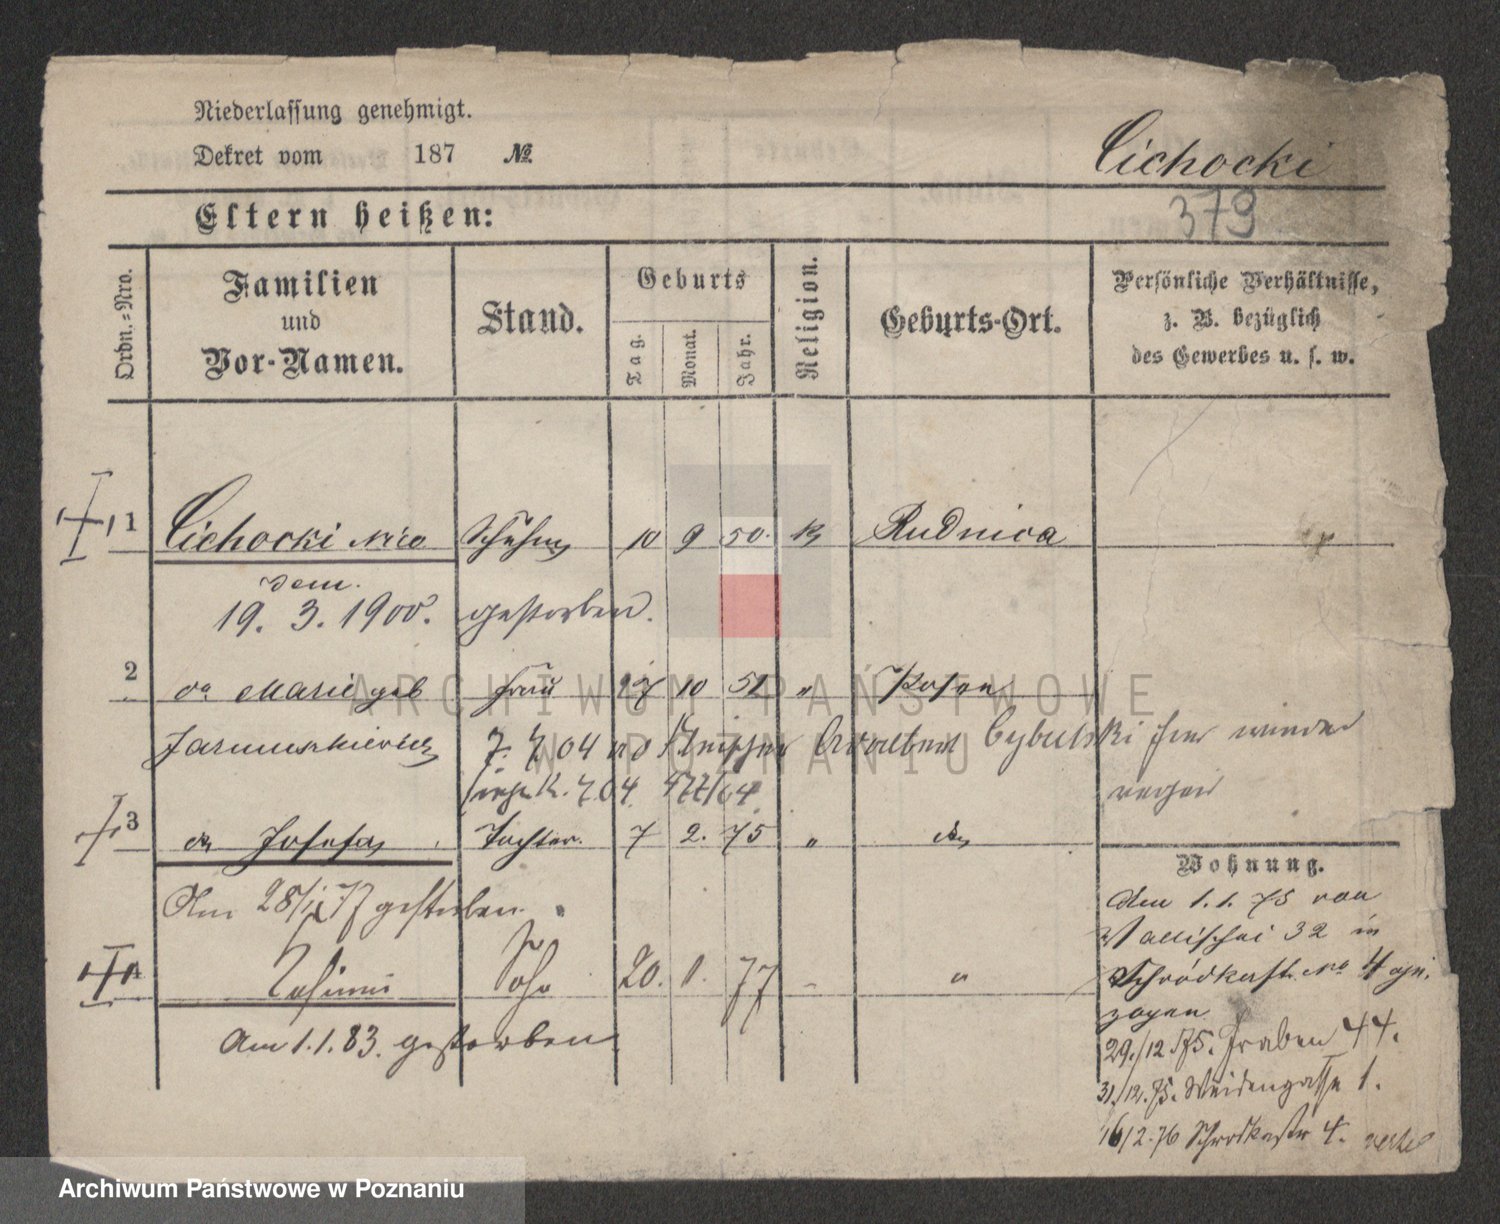 Niederlassung genehmigt.
Dekret vom 187 №
Cichocki
379
Eltern heißen:
Ordn.=Nro.
Familien und Vor-Namen.
Stand.
Geburts
Tag.
Monat.
Jahr.
Religion.
Geburts-Ort.
Persönliche Verhältnisse, z. B. bezüglich des Gewerbes u. s. w.
1 Cichocki Nico Schuhm 10 9 50. K Rudnica
dem.
19. 3. 1900. gestorben.
2 do Marie geb Frau 10 51 " Posen
Jarmuszkiewicz 7. 7 04 Cybulski hier wieder
7.04
3 do Josefa Tochter. 7 2. 75 " do
Am 28/ 77 gestorben.
4 Sohn 20. 1. 77 - "
Am 1.1.83. gestorben
Wohnung.
Am 1.1.75 von
Wallischei 32 in
Schrodkastr. No 4 ge
zogen
29./12 75. Graben 44.
31./12. 75. Weidengasse 1.
16/2.76 Schrodkastr 4.
ARCHIWUM PAŃSTWOWE
W POZNANIU
Archiwum Państwowe w Poznaniu